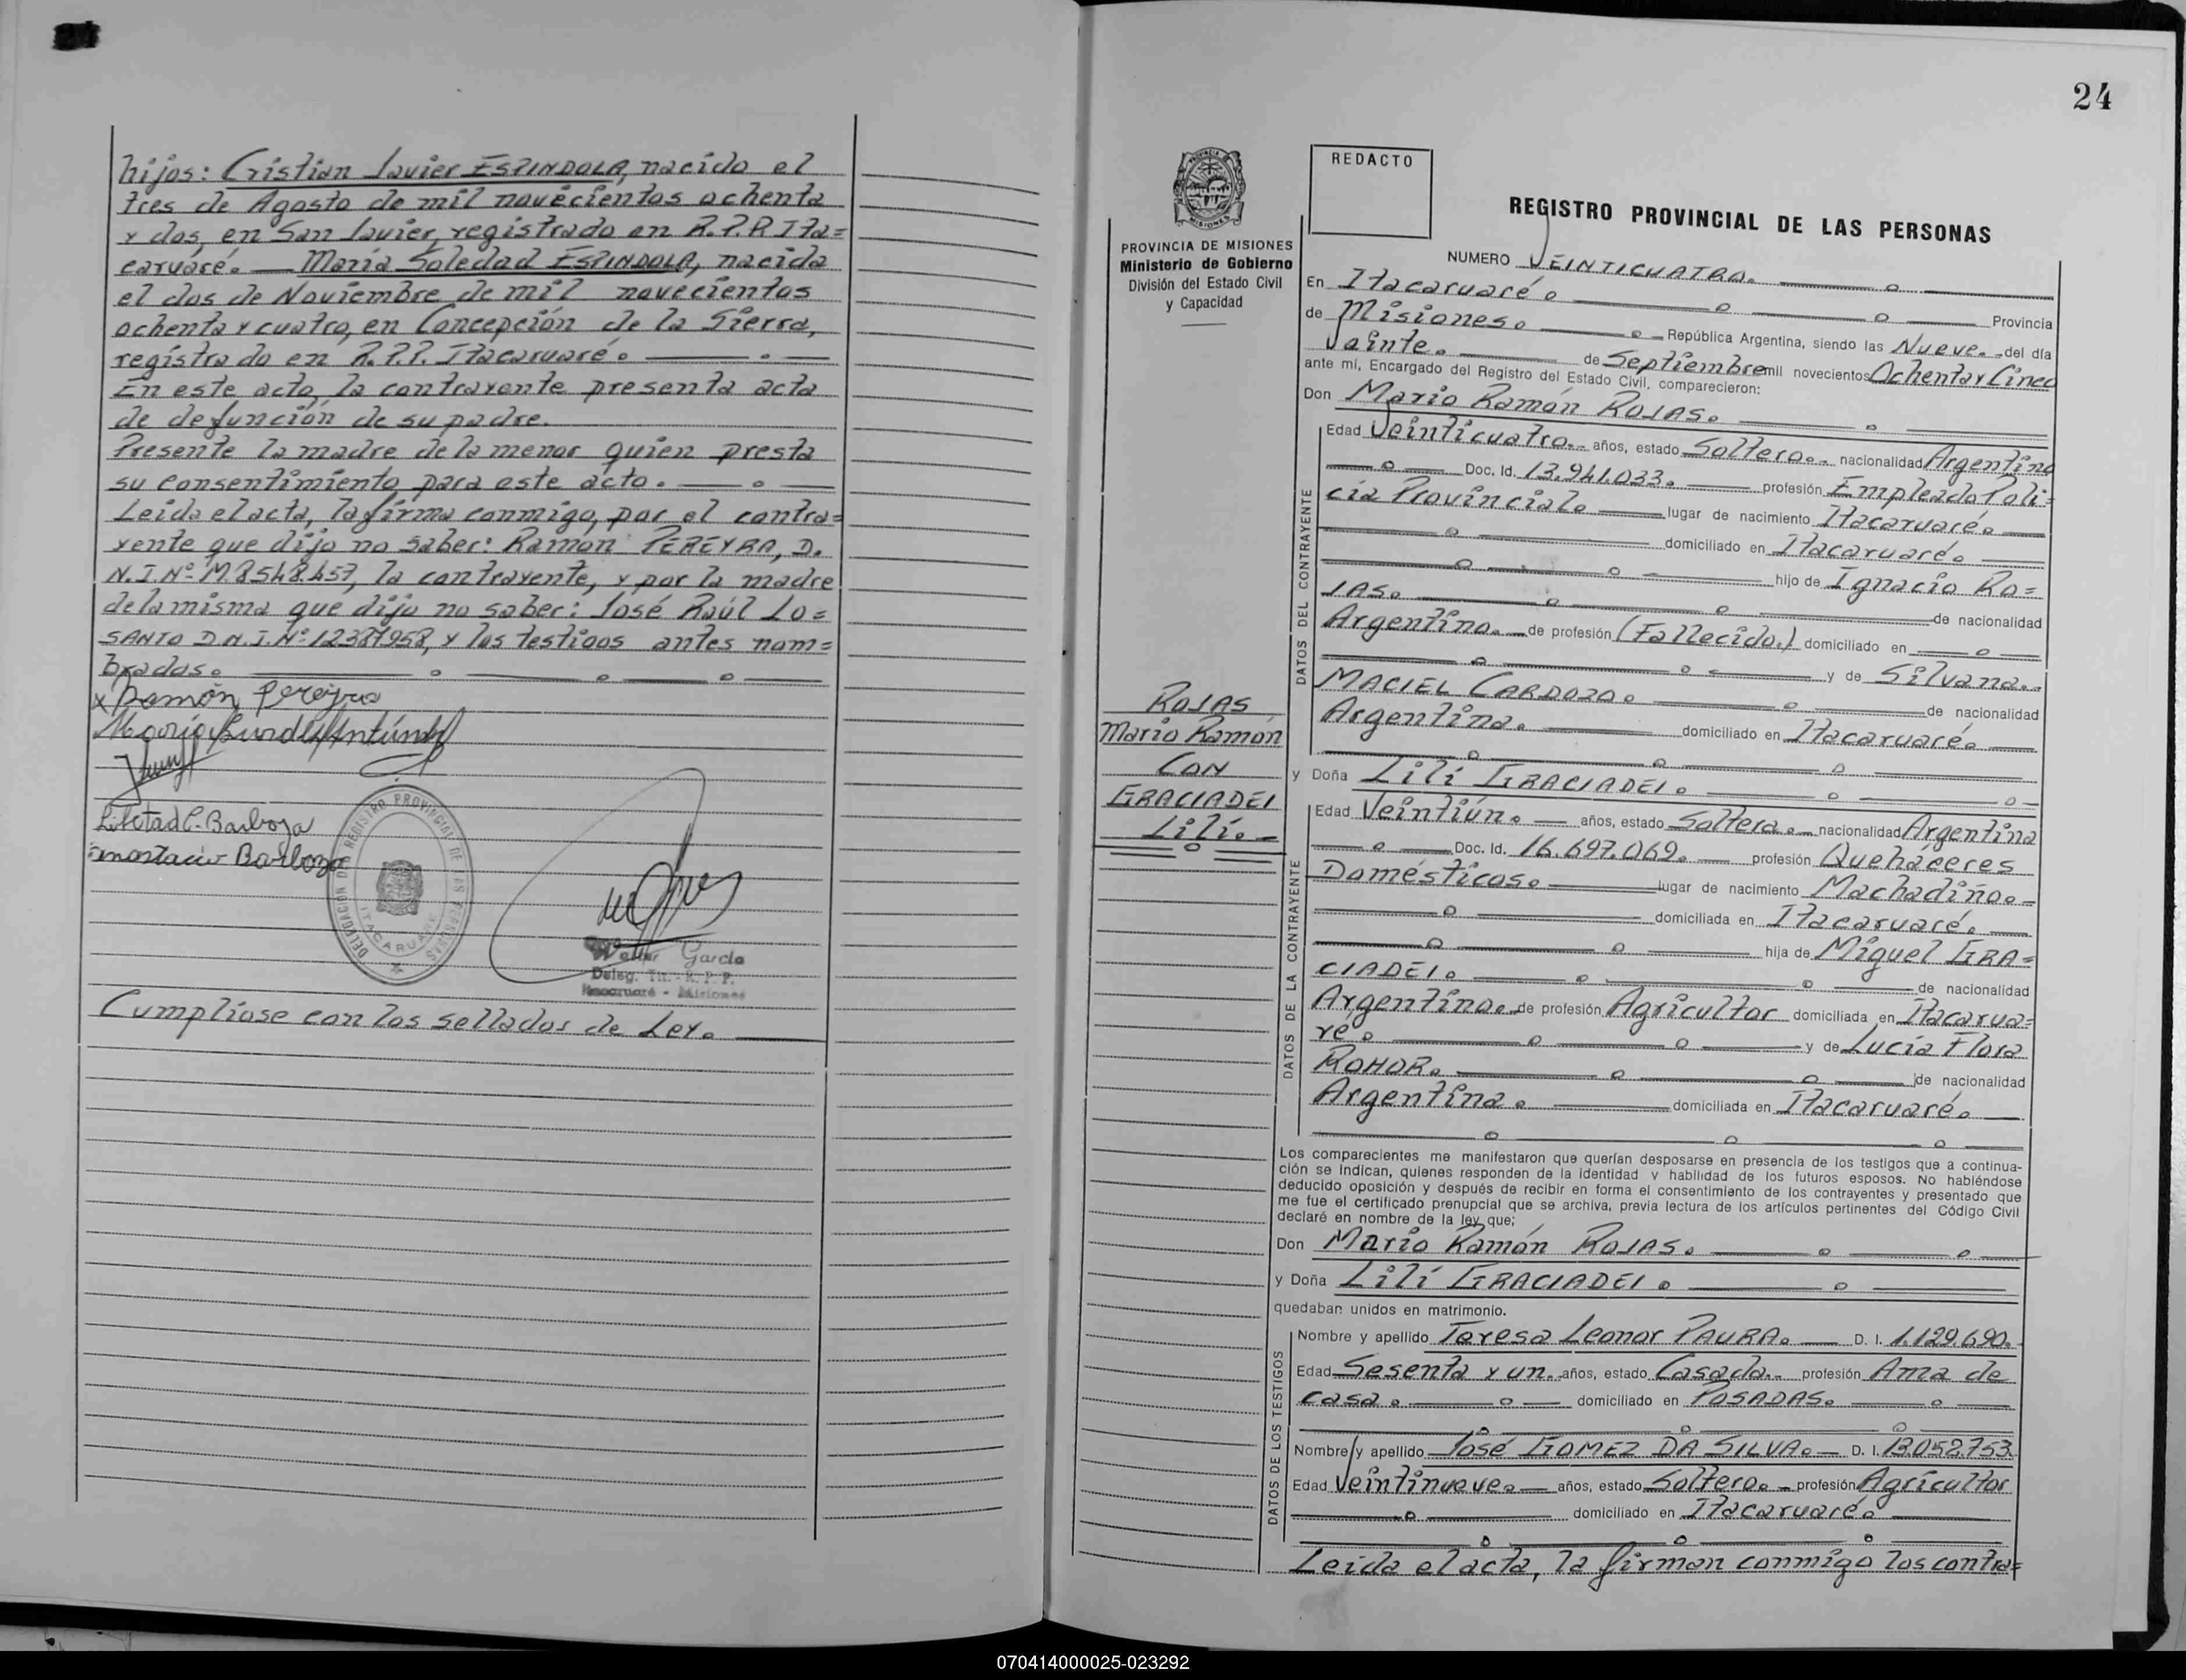 hijos: Cristian Javier ESPINDOLA, nacido el
tres de Agosto de mil novecientos ochenta
y dos, en San Javier, registrado en R.P.P. Ita=
caruaré. María Soledad ESPINDOLA, nacida
el dos de Noviembre de mil novecientos
ochenta y cuatro, en Concepción de la Sierra,
registrado en R.P.P. Itacaruaré.
En este acto, la contrayente presenta acta
de defunción de su padre.
Presente la madre de la menor quien presta
su consentimiento para este acto.
Leida el acta, la firma conmigo, por el contra=
yente que dijo no saber: Ramón PEREYRA, D.
N.I.Nº M.8548.457, la contrayente, y por la madre
de la misma que dijo no saber: José Raúl LO=
SANTO D.N.I.Nº 12387.958, y los testigos antes nom=
brados.
x Ramón Pereyra
Libertad C. Barboza
Anastacio Barboza
DELEGACION DEL REGISTRO PROVINCIAL DE LAS PERSONAS
ITACARUARE
Walter García
Deleg. Tit. R.P.P.
Itacaruaré - Misiones
Cumplióse con los sellados de Ley.
24
PROVINCIA DE MISIONES
Ministerio de Gobierno
División del Estado Civil
y Capacidad
ROJAS
Mario Ramón
CON
GRACIADEI
Lilí.
REDACTO
REGISTRO PROVINCIAL DE LAS PERSONAS
NUMERO VEINTICUATRO.
En Itacaruaré. Provincia
de Misiones. República Argentina, siendo las Nueve. del día
Veinte. de Septiembre mil novecientos Ochenta y Cinco
ante mí, Encargado del Registro del Estado Civil, comparecieron:
Don Mario Ramón ROJAS.
DATOS DEL CONTRAYENTE
Edad Veinticuatro. años, estado Soltero. nacionalidad Argentina
Doc. Id. 13.941.033. profesión Empleado Poli=
cía Provincial. lugar de nacimiento Itacaruaré.
domiciliado en Itacaruaré.
hijo de Ignacio RO=
JAS. de nacionalidad
Argentino. de profesión (Fallecido.) domiciliado en
y de Silvana.
MACIEL CARDOZO. de nacionalidad
Argentina. domiciliado en Itacaruaré.
y Doña Lilí GRACIADEI.
DATOS DE LA CONTRAYENTE
Edad Veintiún. años, estado Soltera. nacionalidad Argentina
Doc. Id. 16.697.069. profesión Quehaceres
Domésticos. lugar de nacimiento Machadiño.
domiciliada en Itacaruaré.
hija de Miguel GRA=
CIADEI. de nacionalidad
Argentino. de profesión Agricultor domiciliada en Itacarua=
ré. y de Lucía Flora
ROHOR. de nacionalidad
Argentina. domiciliada en Itacaruaré.
Los comparecientes me manifestaron que querían desposarse en presencia de los testigos que a continua-
ción se indican, quienes responden de la identidad y habilidad de los futuros esposos. No habiéndose
deducido oposición y después de recibir en forma el consentimiento de los contrayentes y presentado que
me fue el certificado prenupcial que se archiva, previa lectura de los artículos pertinentes del Código Civil
declaré en nombre de la ley que;
Don Mario Ramón ROJAS.
y Doña Lilí GRACIADEI.
quedaban unidos en matrimonio.
DATOS DE LOS TESTIGOS
Nombre y apellido Teresa Leonor PAURA. D. I. 1.129.690.
Edad Sesenta y un. años, estado Casada. profesión Ama de
casa. domiciliado en POSADAS.
Nombre y apellido José GOMEZ DA SILVA. D. I. 13.052.753.
Edad Veintinueve. años, estado Soltero. profesión Agricultor
domiciliado en Itacaruaré.
Leida el acta, la firman conmigo los contra=
070414000025-023292